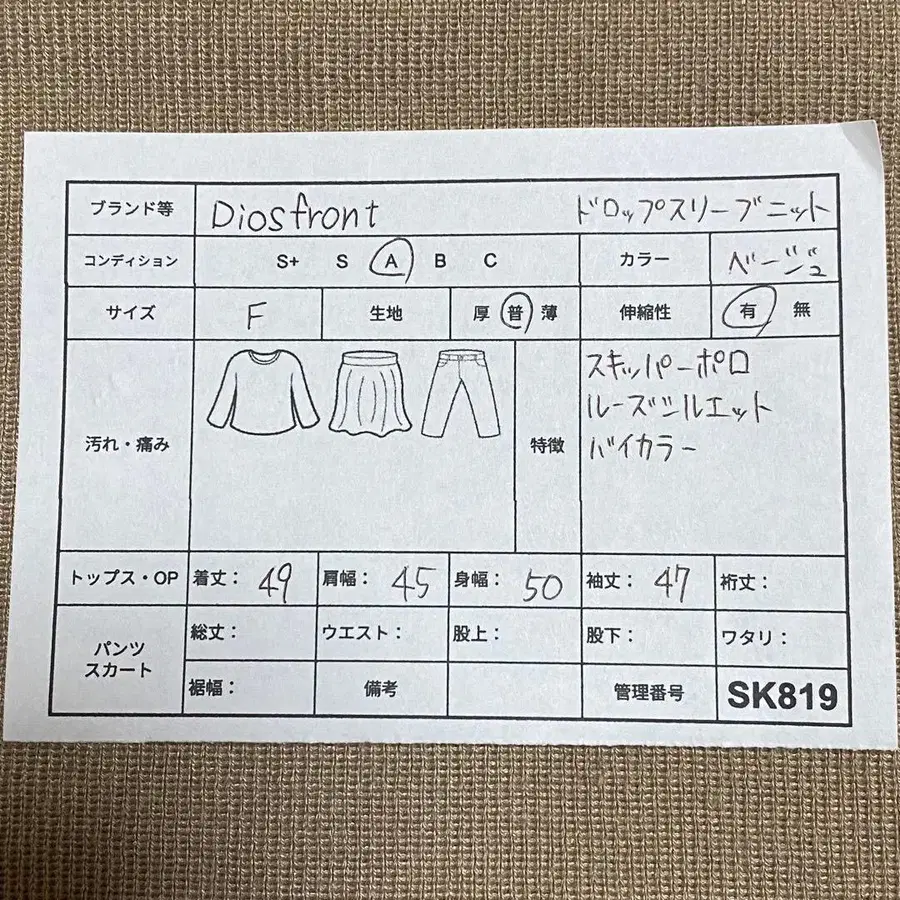 ブランド等 Diosfront ドロップスリーブニット
コンディション S+ S A B C カラー ベージュ
サイズ F 生地 厚 普 薄 伸縮性 有 無
汚れ・痛み 特徴 スキッパーポロ
ルーズシルエット
バイカラー
トップス・OP 着丈： 49 肩幅： 45 身幅： 50 袖丈： 47 裄丈：
パンツ スカート 総丈： ウエスト： 股上： 股下： ワタリ：
裾幅： 備考 管理番号 SK819